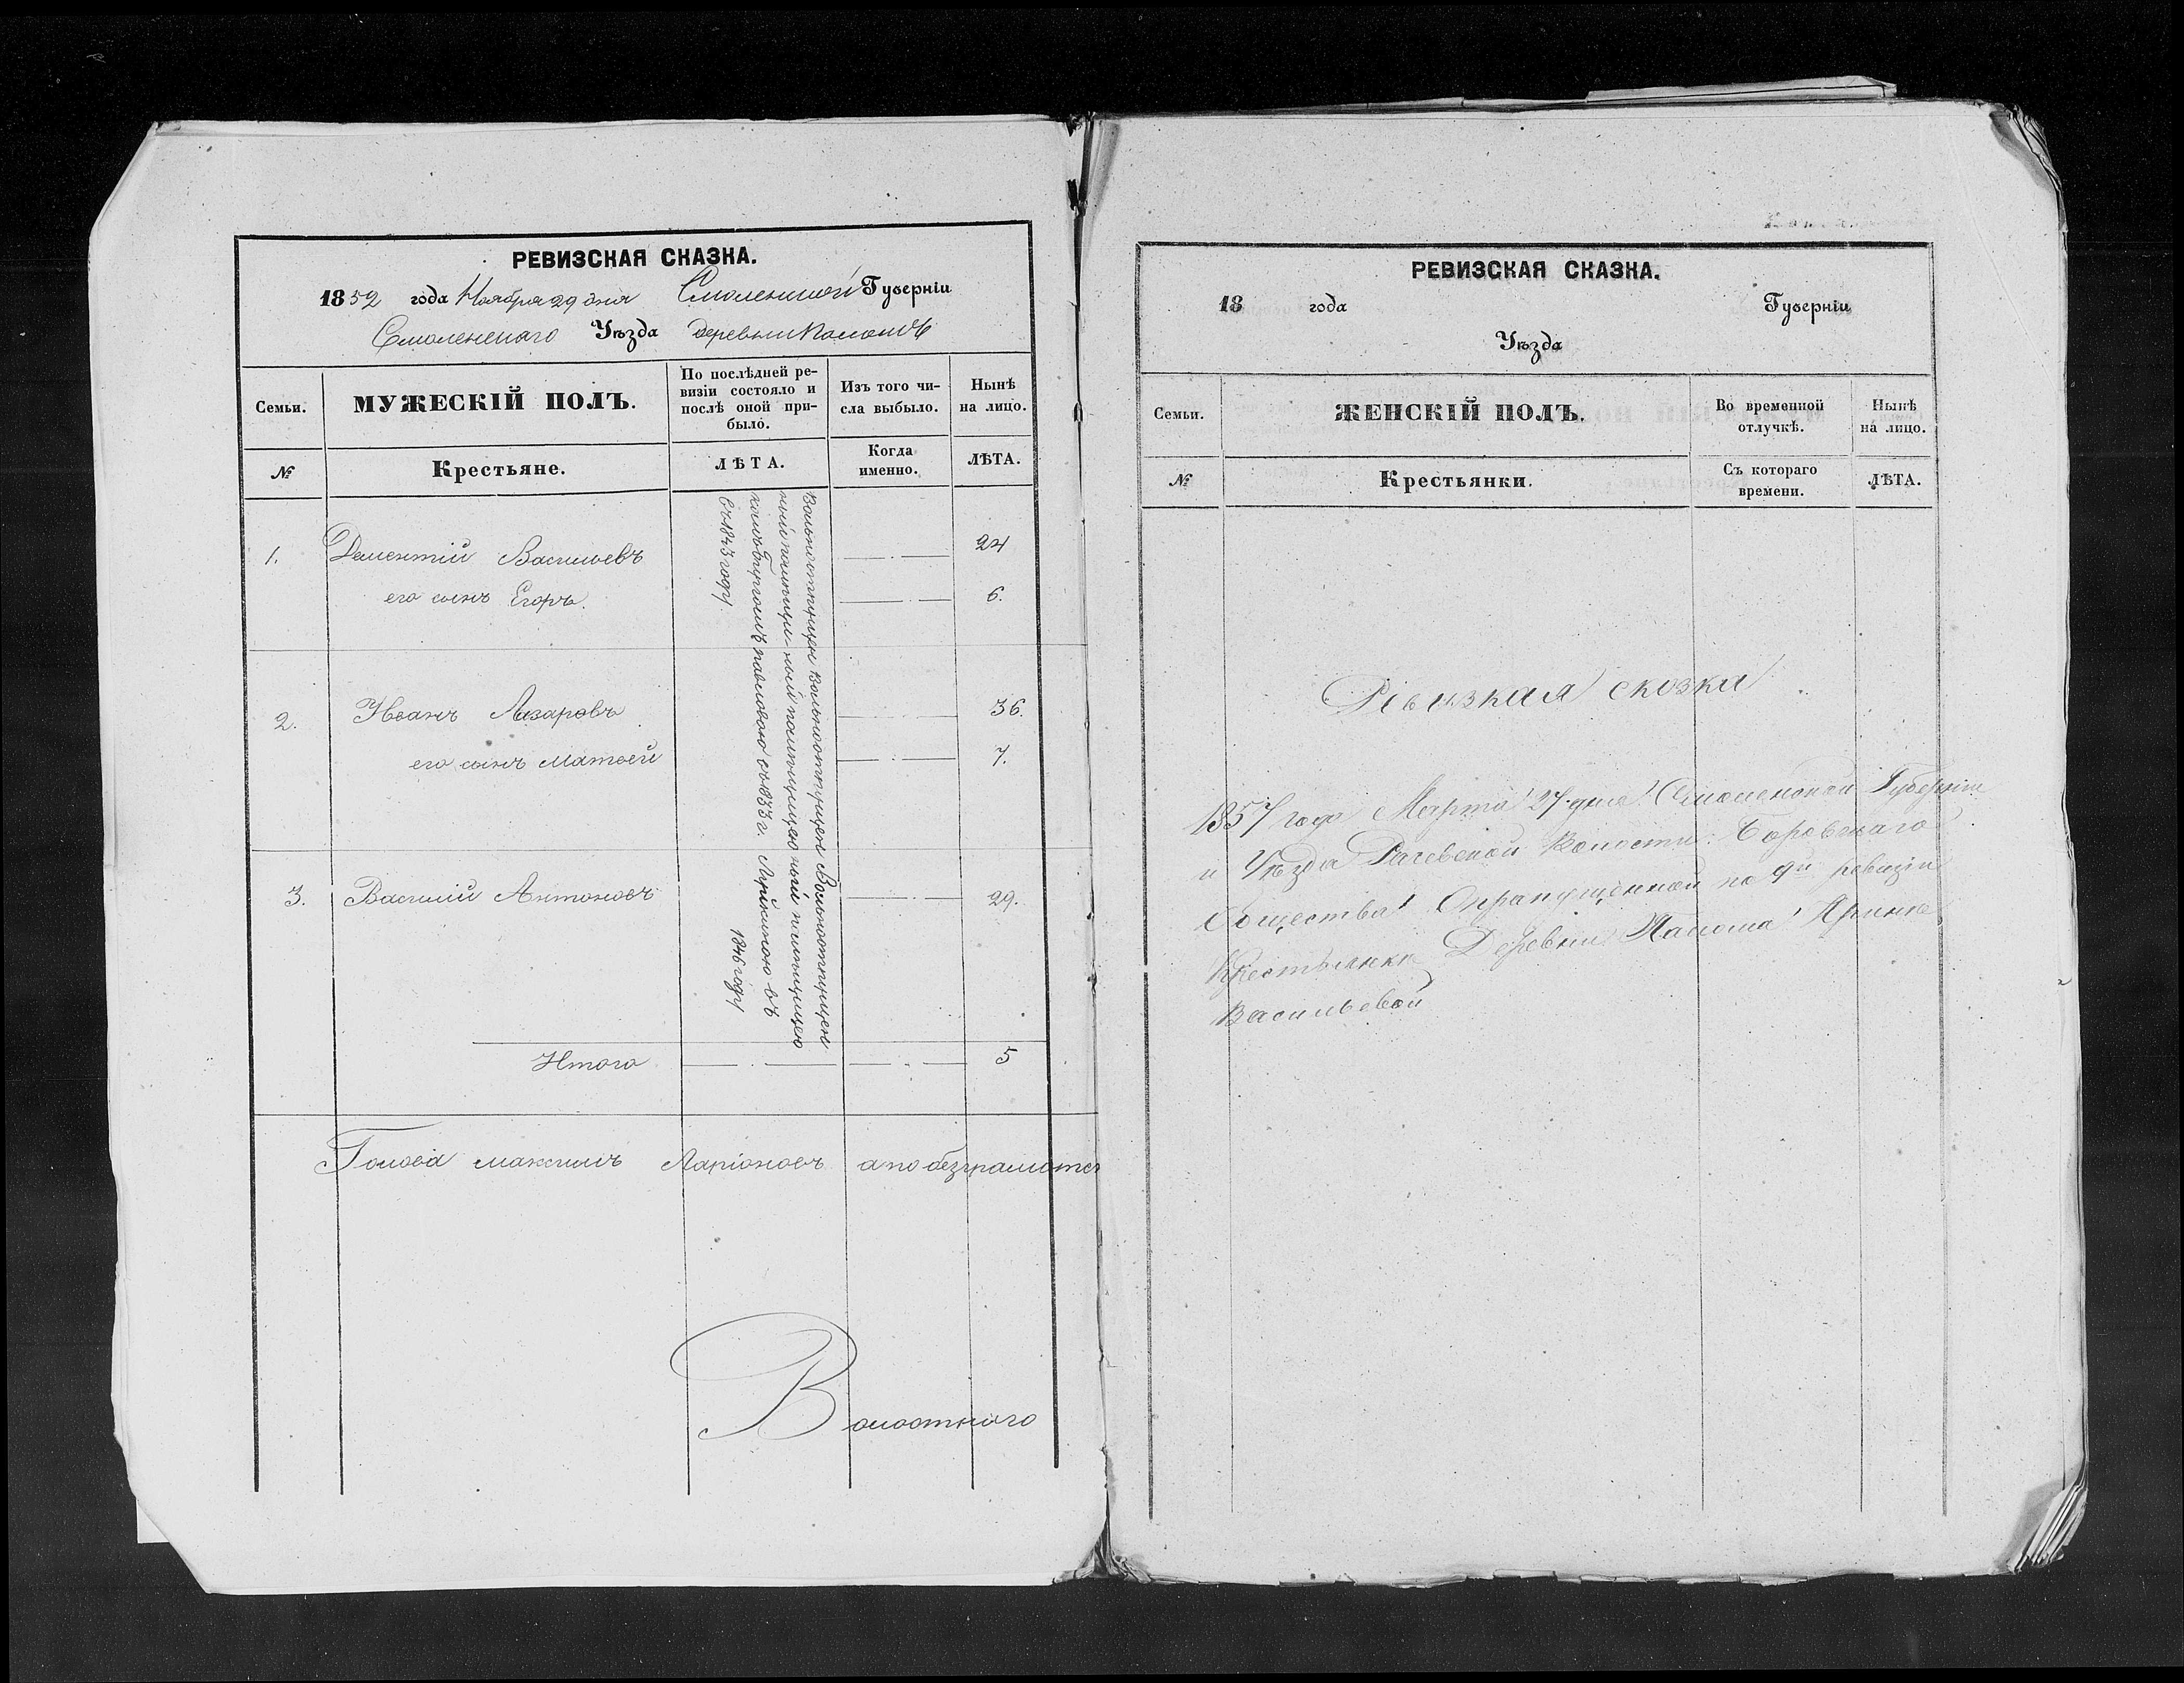 РЕВИЗСКАЯ СКАЗКА.
1852 года Ноября 29 дня Смоленской Губерніи
Смоленскаго Уѣзда деревни
Семьи. МУЖЕСКІЙ ПОЛЪ. По послѣдней ре-
визіи состояло и
послѣ оной при-
было. Изъ того чи-
сла выбыло. Нынѣ
на лицо.
№ Крестьяне. ЛѢТА. Когда
именно. ЛѢТА.
1. Дементій Васильевъ 24
его сынъ Егоръ. 6.
2. Иванъ Лазаровъ 36.
его сынъ Матвей 7.
3. Василій Антоновъ 29.
Вольноотпущен Вольноотпущен Вольноотпущен
съ 1833 г. въ
въ 1843 году 1846 году
Итого 5
Голова Максимъ Ларіоновъ а по безграмотс
Волостнаго
РЕВИЗСКАЯ СКАЗКА.
18 года Губерніи
Уѣзда
Семьи. ЖЕНСКІЙ ПОЛЪ. Во временной
отлучкѣ. Нынѣ
на лицо.
№ Крестьянки. Съ котораго
времени. ЛѢТА.
Ревизкая сказка
1857 года Марта 27 дня Смоленской Губерніи
и Уѣзда Волости
Общества по 9й ревизіи
Крестьянки Деревни
Васильевой